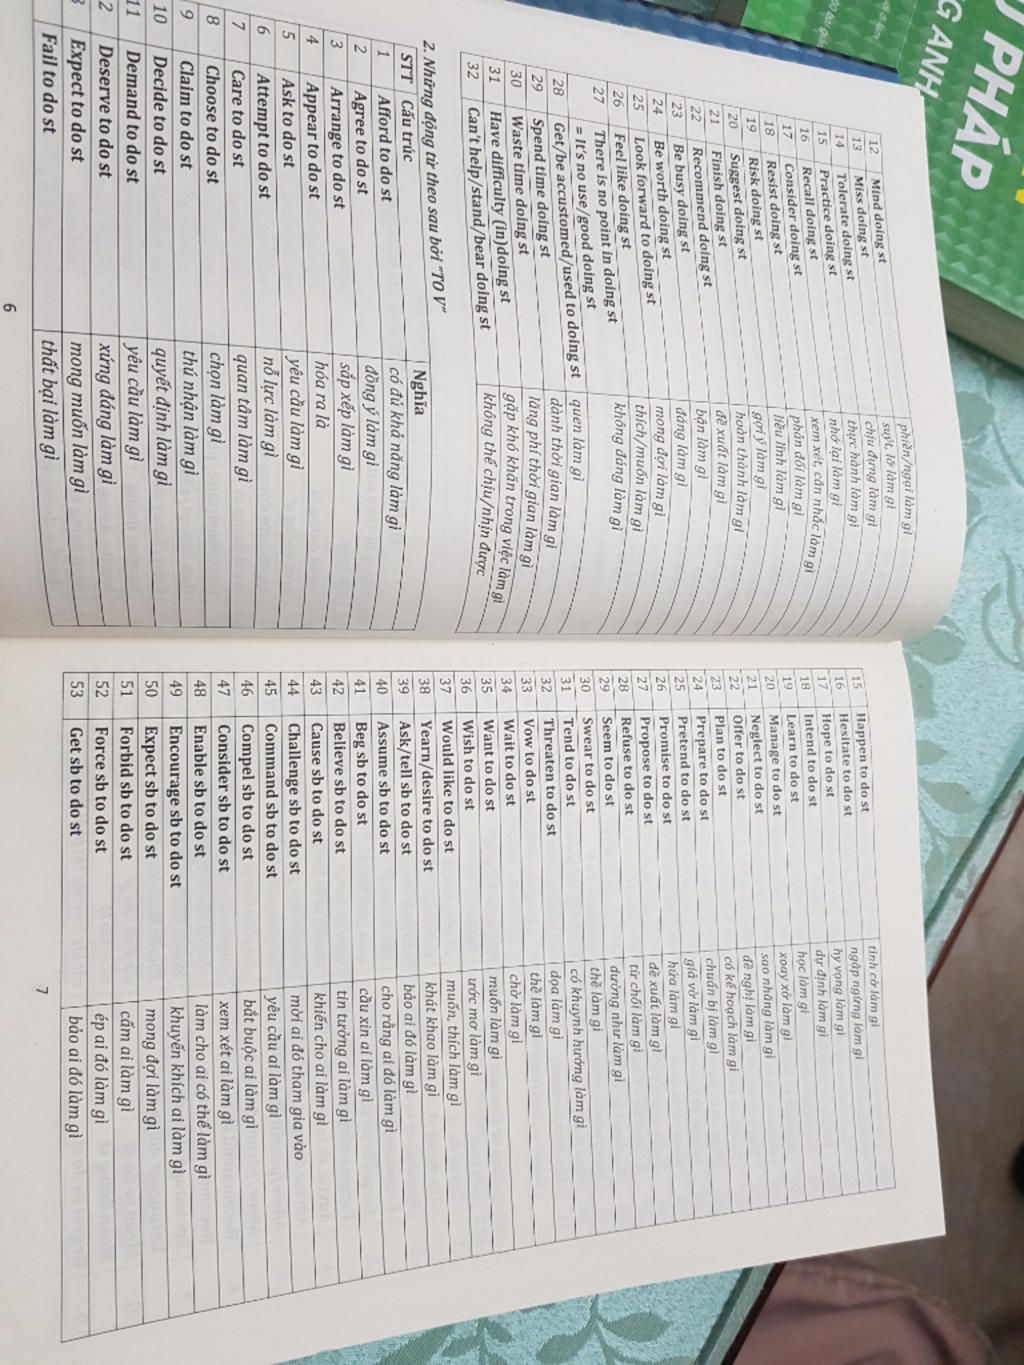 Ữ PHÁP
G ANH
12 Mind doing st phiền/ngại làm gì
13 Miss doing st suýt, lỡ làm gì
14 Tolerate doing st chịu đựng làm gì
15 Practice doing st thực hành làm gì
16 Recall doing st nhớ lại làm gì
17 Consider doing st xem xét, cân nhắc làm gì
18 Resist doing st phản đối làm gì
19 Risk doing st liều lĩnh làm gì
20 Suggest doing st gợi ý làm gì
21 Finish doing st hoàn thành làm gì
22 Recommend doing st đề xuất làm gì
23 Be busy doing st bận làm gì
24 Be worth doing st đáng làm gì
25 Look forward to doing st mong đợi làm gì
26 Feel like doing st thích/muốn làm gì
27 There is no point in doing st không đáng làm gì
= It's no use/good doing st
28 Get/be accustomed/used to doing st quen làm gì
29 Spend time doing st dành thời gian làm gì
30 Waste time doing st lãng phí thời gian làm gì
31 Have difficulty (in)doing st gặp khó khăn trong việc làm gì
32 Can't help/stand/bear doing st không thể chịu/nhịn được
2. Những động từ theo sau bởi "TO V"
STT Cấu trúc Nghĩa
1 Afford to do st có đủ khả năng làm gì
2 Agree to do st đồng ý làm gì
3 Arrange to do st sắp xếp làm gì
4 Appear to do st hóa ra là
5 Ask to do st yêu cầu làm gì
6 Attempt to do st nỗ lực làm gì
7 Care to do st quan tâm làm gì
8 Choose to do st chọn làm gì
9 Claim to do st thú nhận làm gì
10 Decide to do st quyết định làm gì
11 Demand to do st yêu cầu làm gì
2 Deserve to do st xứng đáng làm gì
3 Expect to do st mong muốn làm gì
Fail to do st thất bại làm gì
6
15 Happen to do st tình cờ làm gì
16 Hesitate to do st ngập ngừng làm gì
17 Hope to do st hy vọng làm gì
18 Intend to do st dự định làm gì
19 Learn to do st học làm gì
20 Manage to do st xoay xở làm gì
21 Neglect to do st sao nhãng làm gì
22 Offer to do st đề nghị làm gì
23 Plan to do st có kế hoạch làm gì
24 Prepare to do st chuẩn bị làm gì
25 Pretend to do st giả vờ làm gì
26 Promise to do st hứa làm gì
27 Propose to do st đề xuất làm gì
28 Refuse to do st từ chối làm gì
29 Seem to do st dường như làm gì
30 Swear to do st thề làm gì
31 Tend to do st có khuynh hướng làm gì
32 Threaten to do st dọa làm gì
33 Vow to do st thề làm gì
34 Wait to do st chờ làm gì
35 Want to do st muốn làm gì
36 Wish to do st ước mơ làm gì
37 Would like to do st muốn, thích làm gì
38 Yearn/desire to do st khát khao làm gì
39 Ask/tell sb to do st bảo ai đó làm gì
40 Assume sb to do st cho rằng ai đó làm gì
41 Beg sb to do st cầu xin ai làm gì
42 Believe sb to do st tin tưởng ai làm gì
43 Cause sb to do st khiến cho ai làm gì
44 Challenge sb to do st mời ai đó tham gia vào
45 Command sb to do st yêu cầu ai làm gì
46 Compel sb to do st bắt buộc ai làm gì
47 Consider sb to do st xem xét ai làm gì
48 Enable sb to do st làm cho ai có thể làm gì
49 Encourage sb to do st khuyến khích ai làm gì
50 Expect sb to do st mong đợi làm gì
51 Forbid sb to do st cấm ai làm gì
52 Force sb to do st ép ai đó làm gì
53 Get sb to do st bảo ai đó làm gì
7